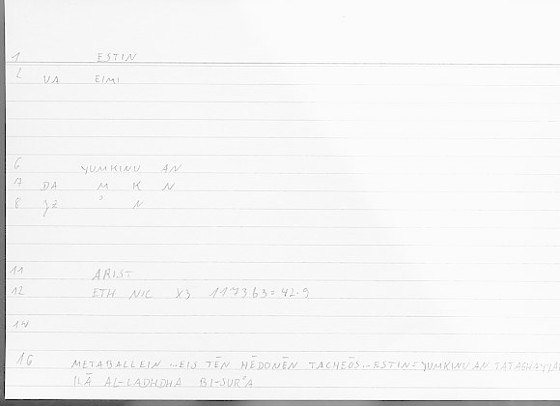 1 ESTIN
2 VA EIMI
6 YUMKINU AN
7 DA M K N
8 YZ ʾ N
11 ARIST
12 ETH NIC X3 1173b3=42.9
14
16 METABALLEIN ...EIS TĒN HĒDONĒN TACHEŌS...ESTIN=YUMKINU AN
ILĀ AL-LADHDHA BI-SURʿA